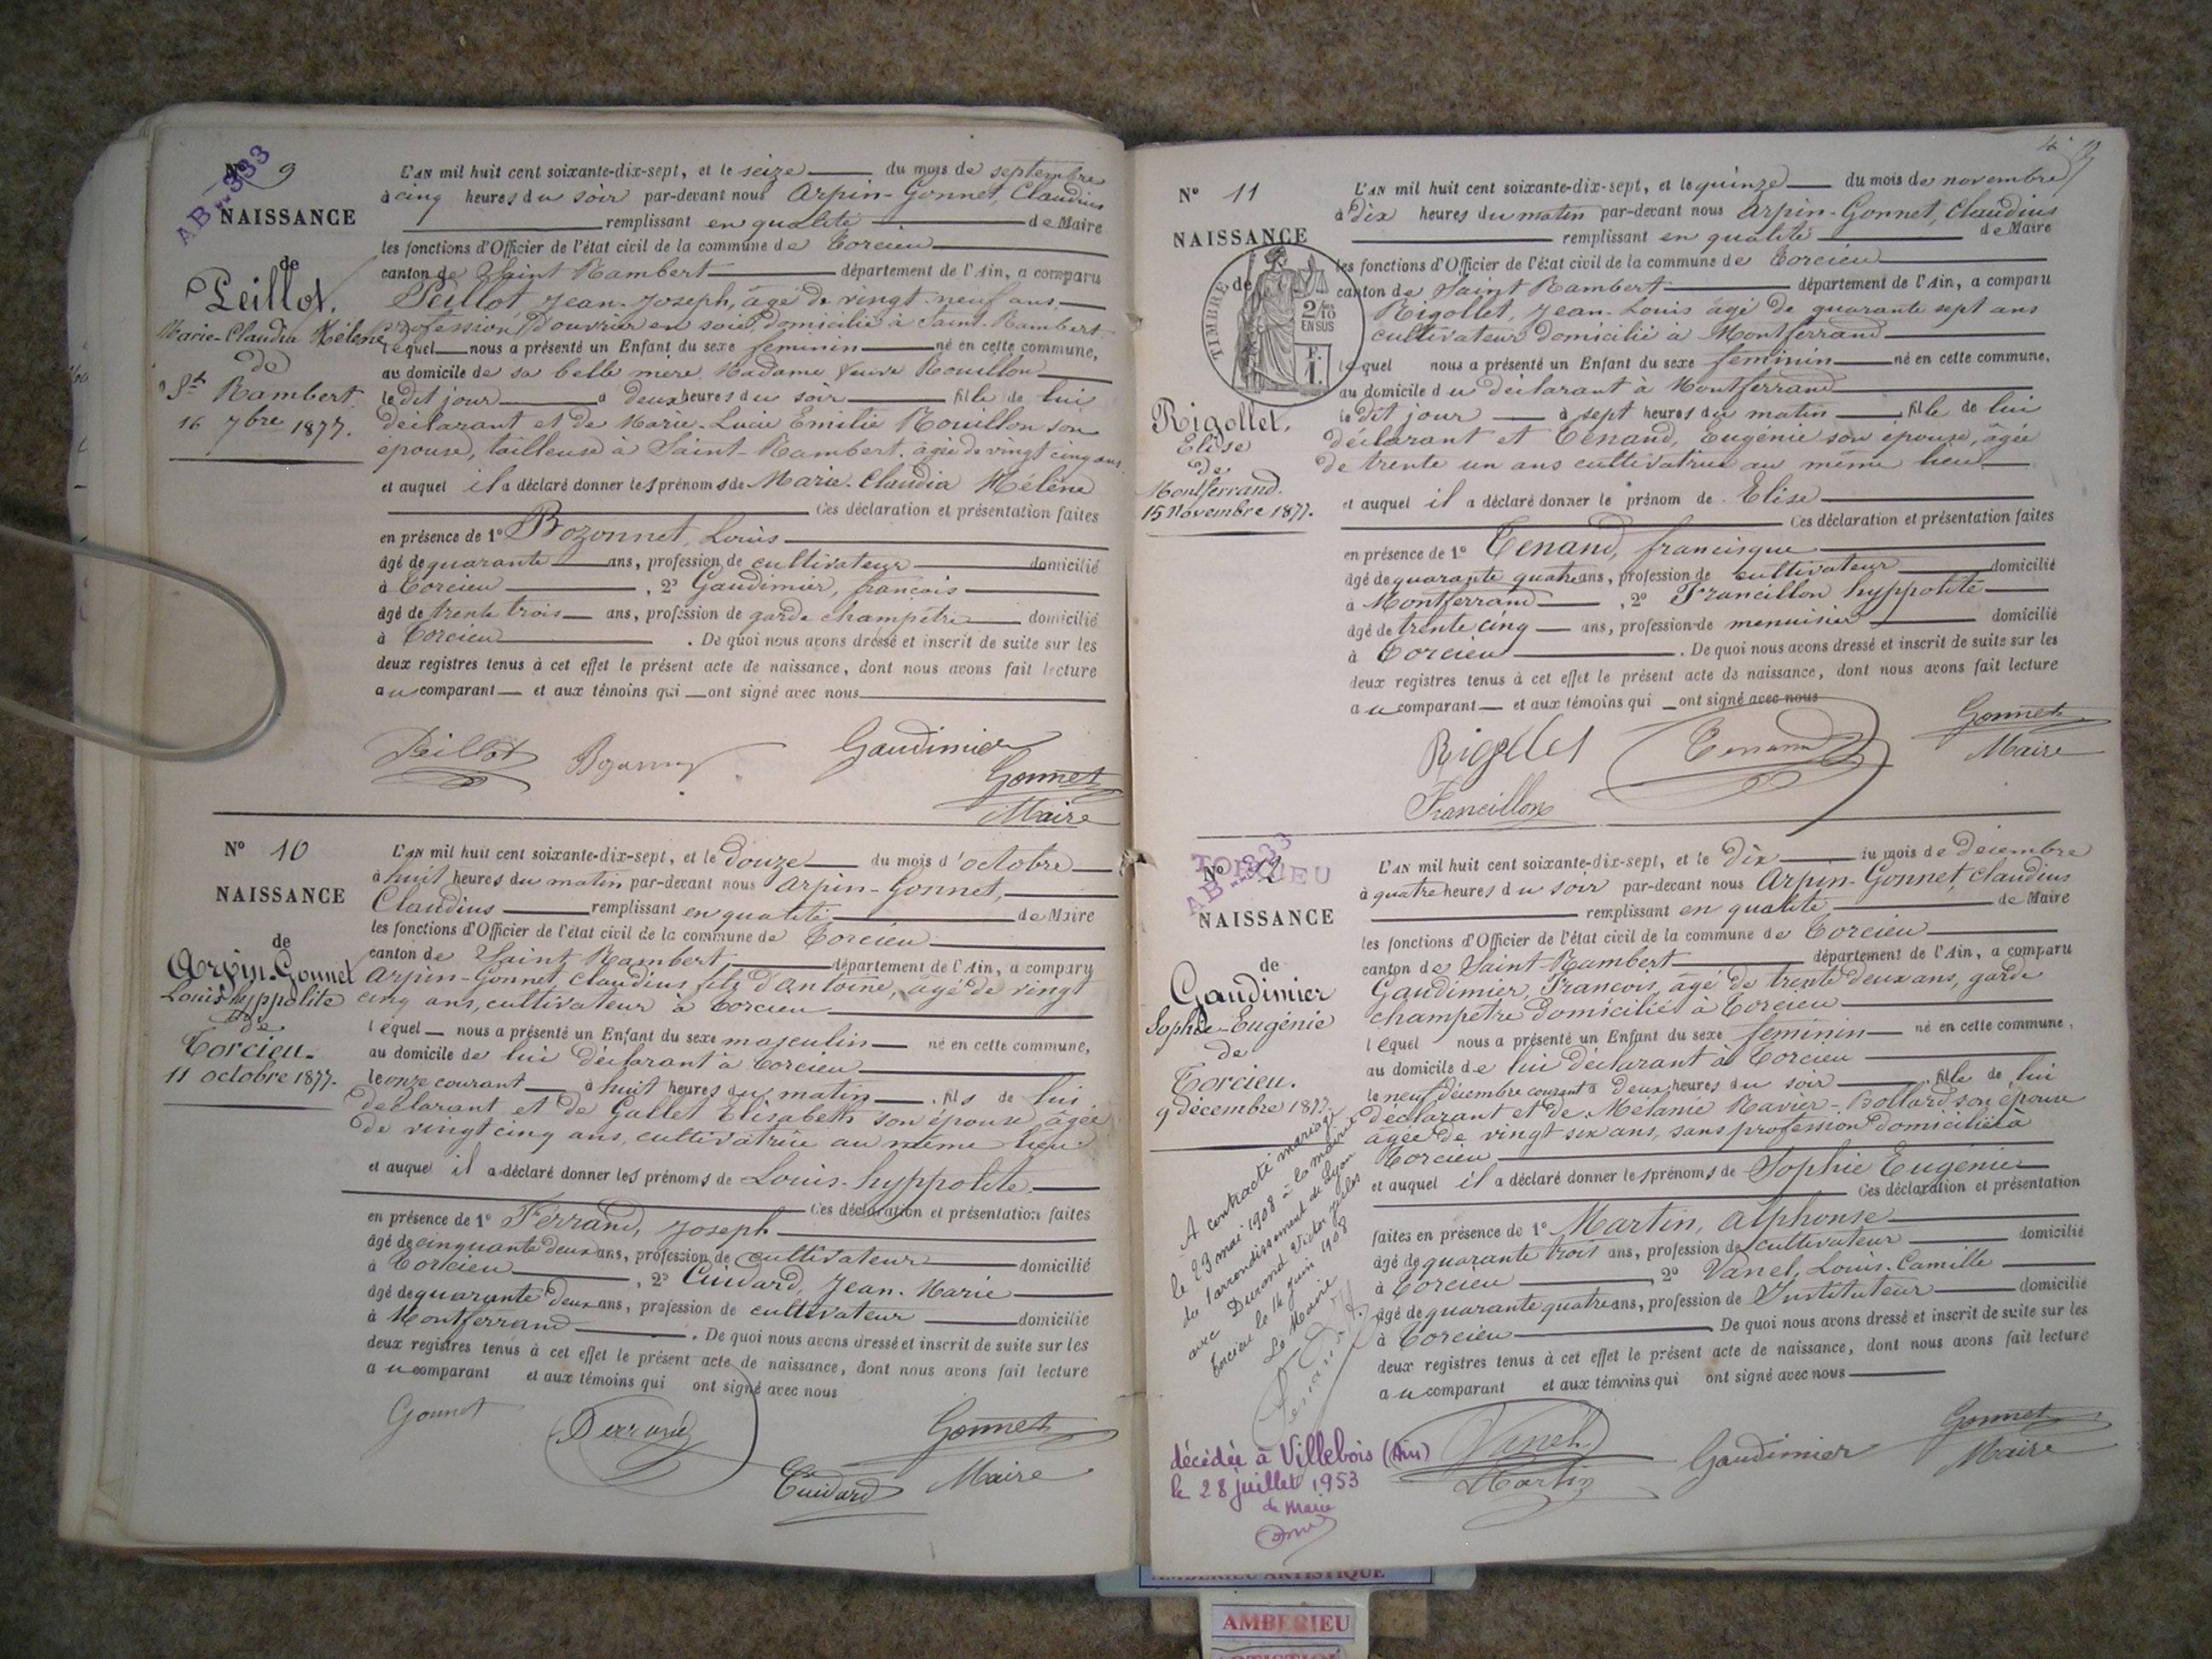 AB-333
N° 9
NAISSANCE
de
Peillot,
Marie-Claudia Hélène
de
St Rambert
16 7bre 1877.
L'AN mil huit cent soixante-dix-sept, et le seize du mois de septembre
à cinq heures du soir par-devant nous Arpin-Gonnet, Claudius
remplissant en qualité de Maire
les fonctions d'Officier de l'état civil de la commune de Torcieu
canton de Saint Rambert département de l'Ain, a comparu
Peillot, Jean-Joseph, âgé de vingt-neuf ans,
profession d'ouvrier en soie, domicilié à Saint-Rambert
lequel nous a présenté un Enfant du sexe feminin né en cette commune,
au domicile de sa belle mère, Madame Veuve Rouillon
le dit jour à deux heures du soir fille de lui
déclarant et de Marie-Lucie Emilie Rouillon son
épouse, tailleuse à Saint-Rambert, âgée de vingt cinq ans.
et auquel il a déclaré donner les prénoms de Marie-Claudia Hélène
Ces déclaration et présentation faites
en présence de 1° Bozonnet, Louis
âgé de quarante ans, profession de cultivateur domicilié
à Torcieu, 2° Gaudimier, françois
âgé de trente trois ans, profession de garde champêtre domicilié
à Torcieu. De quoi nous avons dressé et inscrit de suite sur les
deux registres tenus à cet effet le présent acte de naissance, dont nous avons fait lecture
au comparant et aux témoins qui ont signé avec nous
Peillot Gaudimier
Gonnet
Maire
N° 10
NAISSANCE
de
Arpin-Gonnet
Louis hyppolite
de
Torcieu.
11 octobre 1877.
L'AN mil huit cent soixante-dix-sept, et le douze du mois d'octobre
à huit heures du matin par-devant nous Arpin-Gonnet,
Claudius remplissant en qualité de Maire
les fonctions d'Officier de l'état civil de la commune de Torcieu
canton de Saint Rambert, département de l'Ain, a comparu
Arpin-Gonnet, Claudius fils d'Antoine, âgé de vingt
cinq ans, cultivateur à Torcieu
lequel nous a présenté un Enfant du sexe masculin né en cette commune,
au domicile de lui déclarant à Torcieu
le onze courant à huit heures du matin. fils de lui
déclarant et de Gallet Elisabeth son épouse âgée
de vingt cinq ans, cultivatrice au même lieu
et auquel il a déclaré donner les prénoms de Louis-hyppolite.
Ces déclaration et présentation faites
en présence de 1° Ferrand, Joseph
âgé de cinquante deux ans, profession de cultivateur domicilié
à Torcieu, 2° Cuidard, Jean-Marie
âgé de quarante deux ans, profession de cultivateur domicilié
à Montferrand. De quoi nous avons dressé et inscrit de suite sur les
deux registres tenus à cet effet le présent acte de naissance, dont nous avons fait lecture
au comparant et aux témoins qui ont signé avec nous
Gonnet Ferrand Gonnet
Cuidard Maire
N° 11
NAISSANCE
de
TIMBRE
2/10
EN SUS
Rigollet,
Elise
de
Montferrand.
15 Novembre 1877.
L'AN mil huit cent soixante-dix-sept, et le quinze du mois de novembre
à dix heures du matin par-devant nous Arpin-Gonnet, Claudius
remplissant en qualité de Maire
les fonctions d'Officier de l'état civil de la commune de Torcieu
canton de Saint Rambert département de l'Ain, a comparu
Rigollet, Jean-Louis âgé de quarante sept ans
cultivateur domicilié à Montferrand
lequel nous a présenté un Enfant du sexe feminin né en cette commune,
au domicile du déclarant à Montferrand
le dit jour à sept heures du matin, fille de lui
déclarant et Tenand, Eugénie son épouse, âgée
de trente un ans cultivatrice au même lieu
et auquel il a déclaré donner le prénom de Elise
Ces déclaration et présentation faites
en présence de 1° Tenand, francisque
âgé de quarante quatre ans, profession de cultivateur domicilié
à Montferrand, 2° Francillon hyppolite
âgé de trente cinq ans, profession de menuisier domicilié
à Torcieu. De quoi nous avons dressé et inscrit de suite sur les
deux registres tenus à cet effet le présent acte de naissance, dont nous avons fait lecture
au comparant et aux témoins qui ont signé avec nous
Rigollet Tenand Gonnet
Francillon Maire
TORCIEU
AB-333
N° 12
NAISSANCE
de
Gaudimier
Sophie-Eugénie
de
Torcieu.
9 décembre 1877.
L'AN mil huit cent soixante-dix-sept, et le dix du mois de décembre
à quatre heures du soir par-devant nous Arpin-Gonnet, Claudius
remplissant en qualité de Maire
les fonctions d'Officier de l'état civil de la commune de Torcieu
canton de Saint-Rambert département de l'Ain, a comparu
Gaudimier, Francois, âgé de trente deux ans, garde
champêtre domicilié à Torcieu
lequel nous a présenté un Enfant du sexe feminin né en cette commune,
au domicile de lui déclarant à Torcieu
le neuf décembre courant à deux heures du soir. fille de lui
déclarant et de Mélanie Ravier-Bollard son épouse
âgée de vingt six ans, sans profession domiciliée à
Torcieu
et auquel il a déclaré donner les prénoms de Sophie Eugénie
Ces déclaration et présentation
faites en présence de 1° Martin, Alphonse
âgé de quarante trois ans, profession de cultivateur domicilié
à Torcieu, 2° Vanel, Louis-Camille
âgé de quarante quatre ans, profession de Instituteur domicilié
à Torcieu De quoi nous avons dressé et inscrit de suite sur les
deux registres tenus à cet effet le présent acte de naissance, dont nous avons fait lecture
au comparant et aux témoins qui ont signé avec nous
A contracté mariage
le 23 mai 1908 à la mairie
du 1 arrondissement de Lyon
avec Durand Victor Jules
Torcieu le 14 juin 1908
Le Maire
Vanel Gaudimier Gonnet
Martin Maire
décédée à Villebois (Ain)
le 28 juillet 1953
le Maire
AMBERIEU ARTISTIQUE
AMBERIEU
ARTISTIQUE